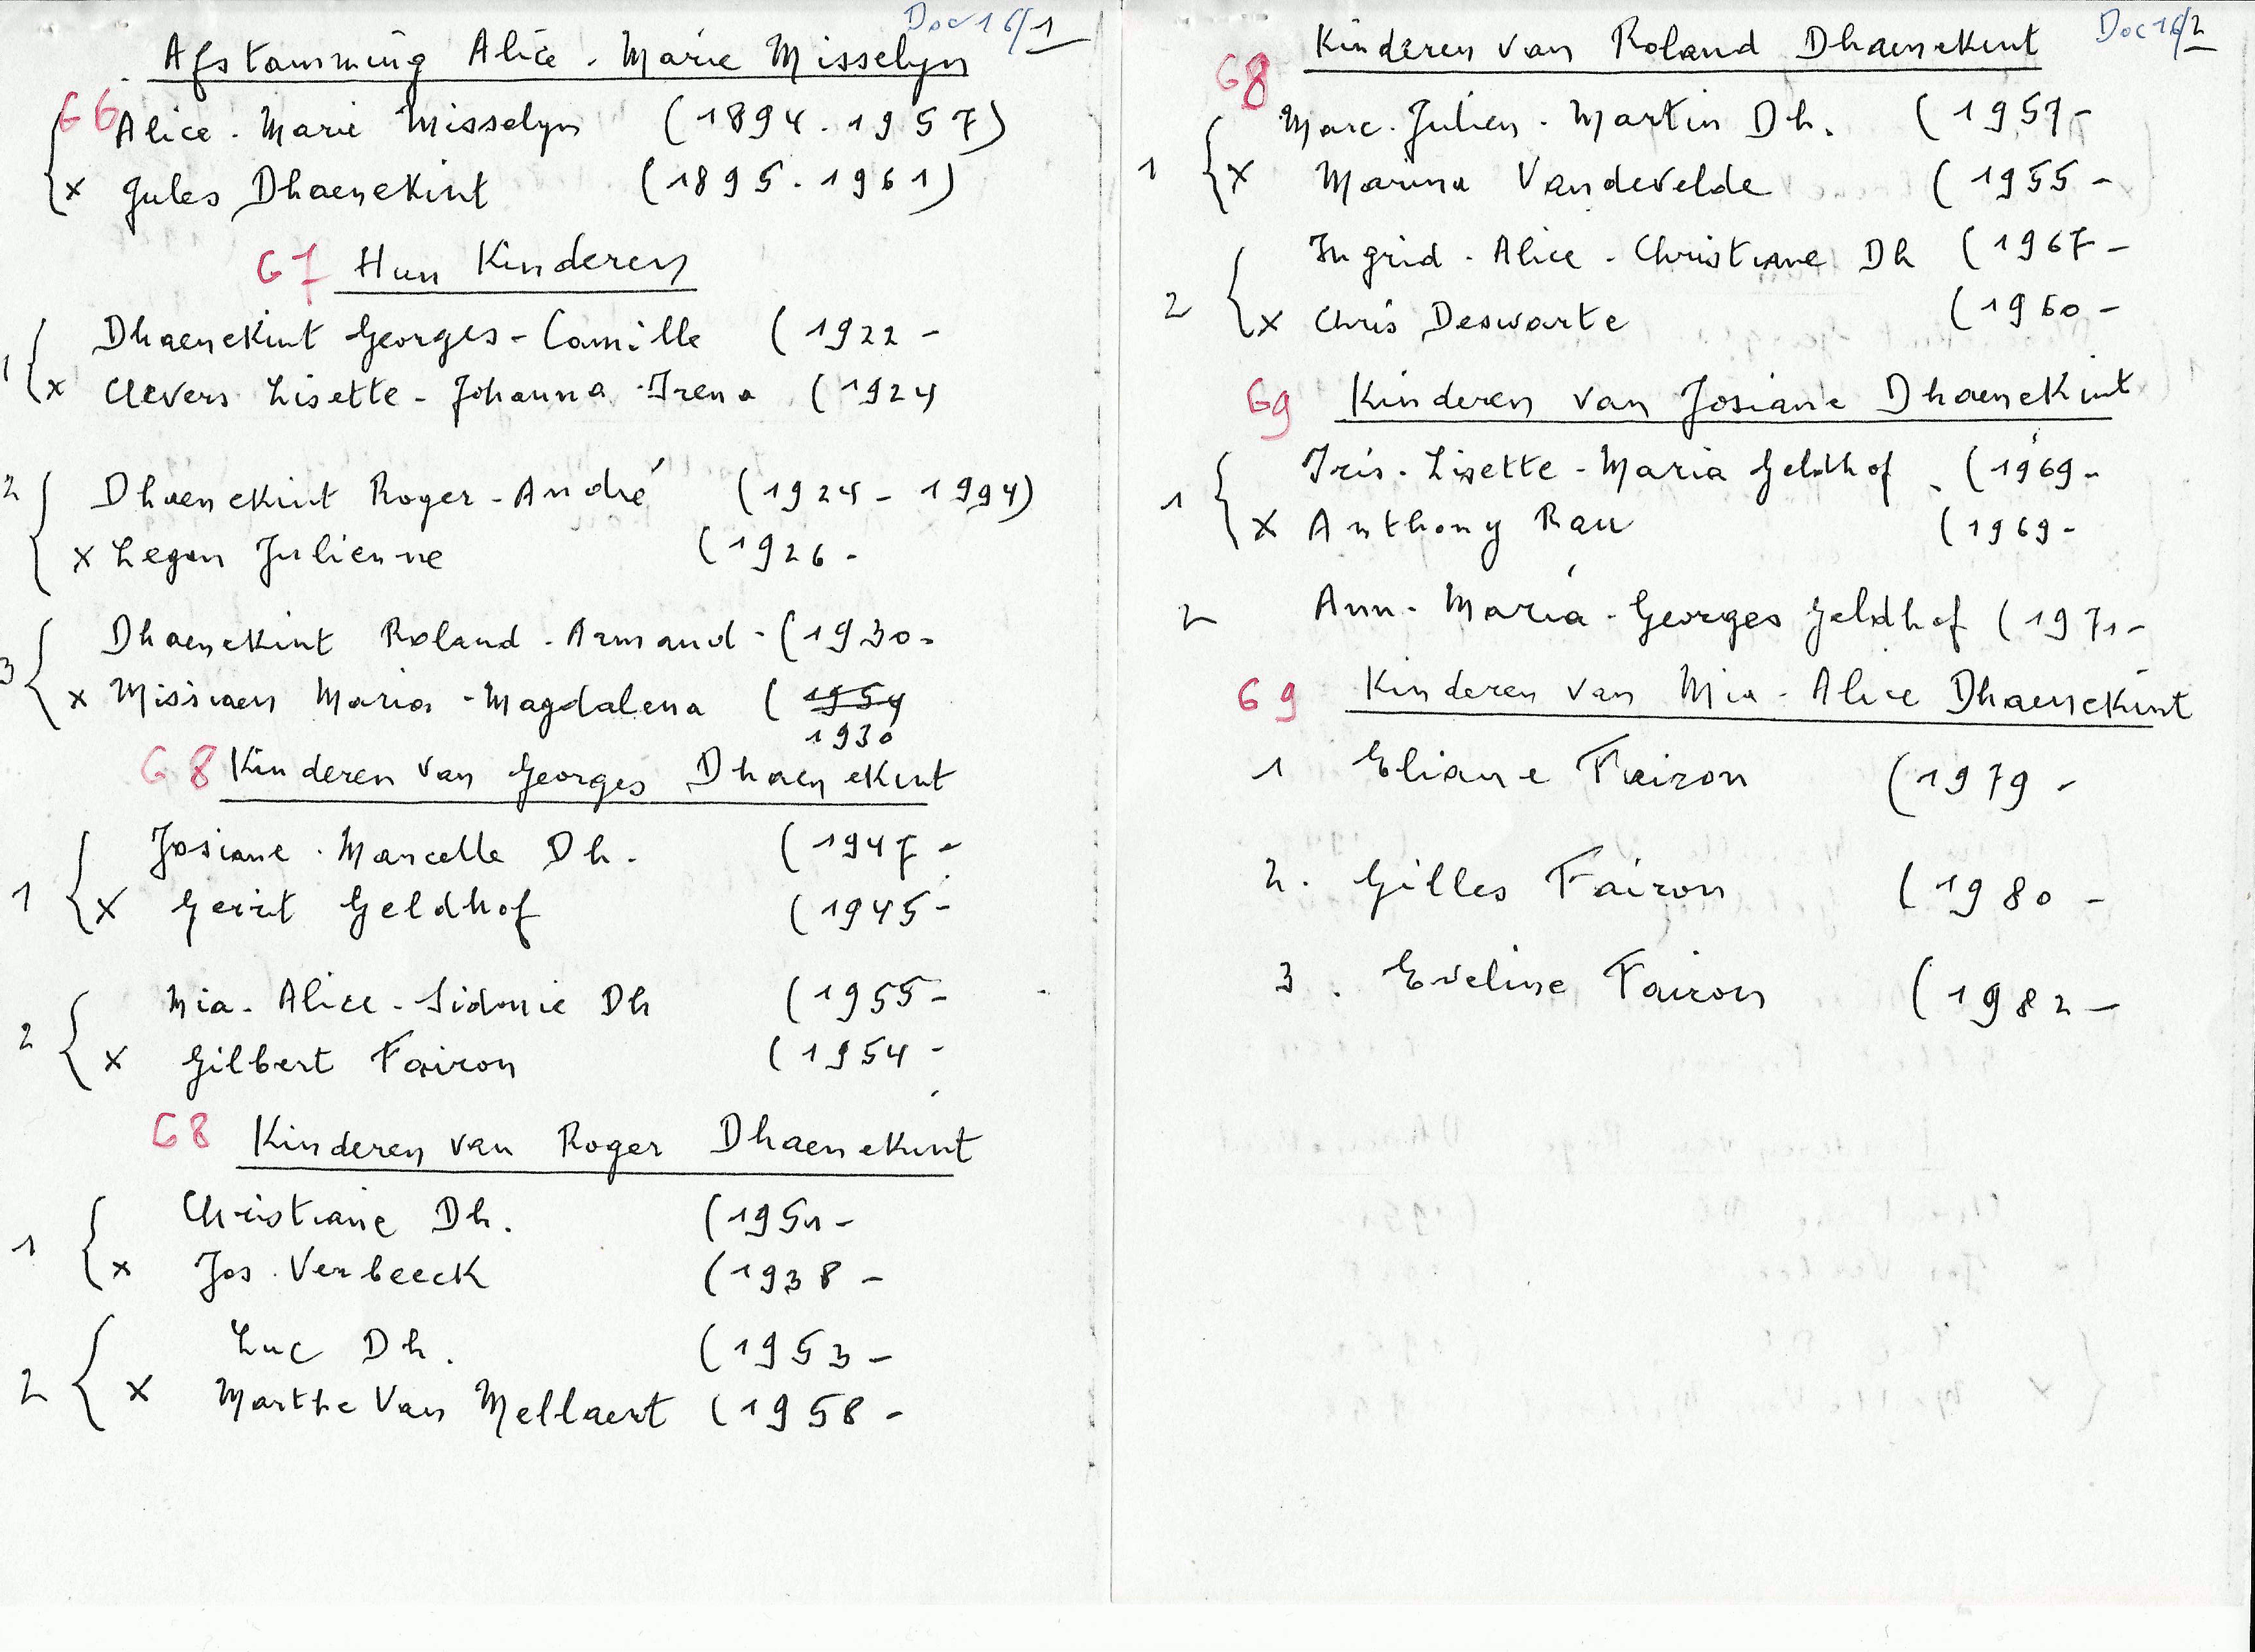 Doc 16/1
Afstamming Alice - Marie Misselyn
G6
Alice - Marie Misselyn (1894 - 1957)
x Jules Dhaenekint (1895 - 1961)
G7 Hun Kinderen
Dhaenekint Georges - Camille (1922 -
1
x Clevers Lisette - Johanna - Irena (1924
2
Dhaenekint Roger - André (1924 - 1994)
x Legon Julienne (1926 -
Dhaenekint Roland - Armand - (1930 -
3
x Missiaen Maria - Magdalena (1954
1930
G8 Kinderen van Georges Dhaenekint
Josiane - Marcelle Dh. (1947 -
1
x Gerrit Geldhof (1945 -
Mia - Alice - Sidonie Dh (1955 -
2
x Gilbert Fairon (1954 -
G8 Kinderen van Roger Dhaenekint
Christiane Dh. (1951 -
1
x Jos Verbeeck (1938 -
Luc Dh. (1953 -
2
x Marthe Van Mellaert (1958 -
Doc 16/2
G8 Kinderen van Roland Dhaenekint
Marc - Julien - Martin Dh. (1957 -
1
x Marina Vandevelde (1955 -
Ingrid - Alice - Christiane Dh (1967 -
2
x Chris Deswarte (1960 -
G9 Kinderen van Josiane Dhaenekint
Iris - Lisette - Maria Geldhof (1969 -
1
x Anthony Rau (1969 -
2 Ann - Maria - Georges Geldhof (1971 -
G9 Kinderen van Mia - Alice Dhaenekint
1 Eliane Fairon (1979 -
2. Gilles Fairon (1980 -
3. Eveline Fairon (1982 -